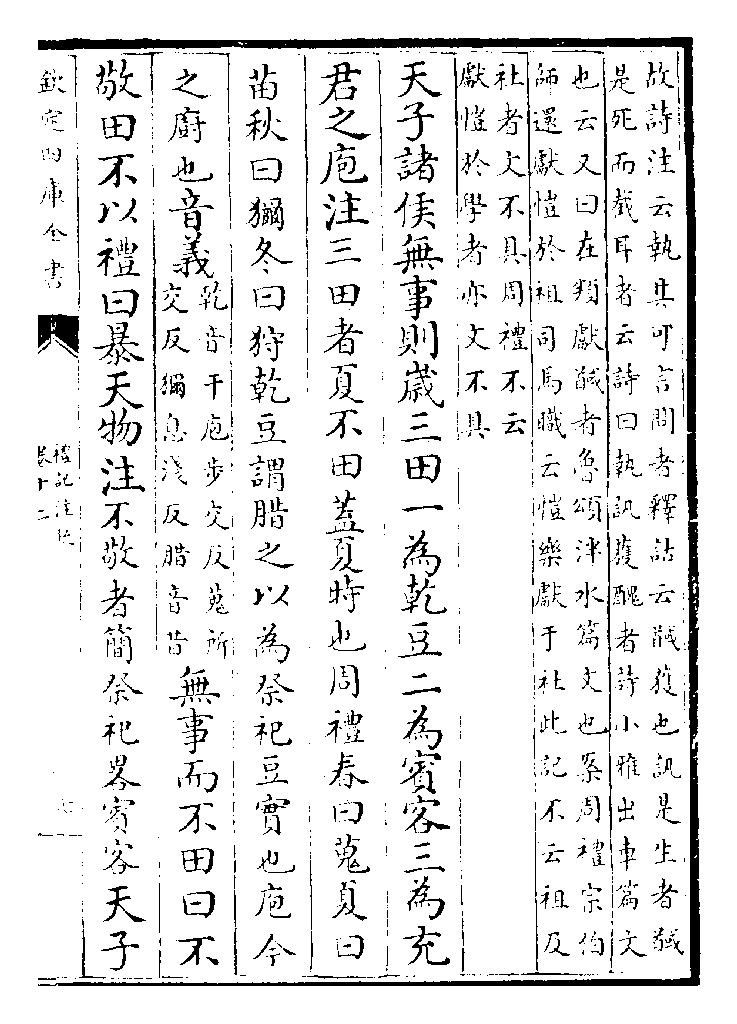 故詩注云執其可言問者釋詁云馘獲也訊是生者馘
是死而截耳者云詩曰執訊獲醜者詩小雅出車篇文
也云又曰在頖獻馘者魯頌泮水篇文也案周禮宗伯
師還獻愷於祖司馬職云愷樂獻于社此記不云祖及
社者文不具周禮不云
獻愷於學者亦文不具
天子諸侯無事則歲三田一為乾豆二為賓客三為充
君之庖注三田者夏不田蓋夏時也周禮春曰蒐夏曰
苗秋曰獮冬曰狩乾豆謂腊之以為祭祀豆實也庖今
之廚也音義
乾音干庖步交反蒐所
交反獮息淺反腊音昔
無事而不田曰不
敬田不以禮曰暴天物注不敬者簡祭祀畧賓客天子
欽定四庫全書
禮記注疏
卷十二
七